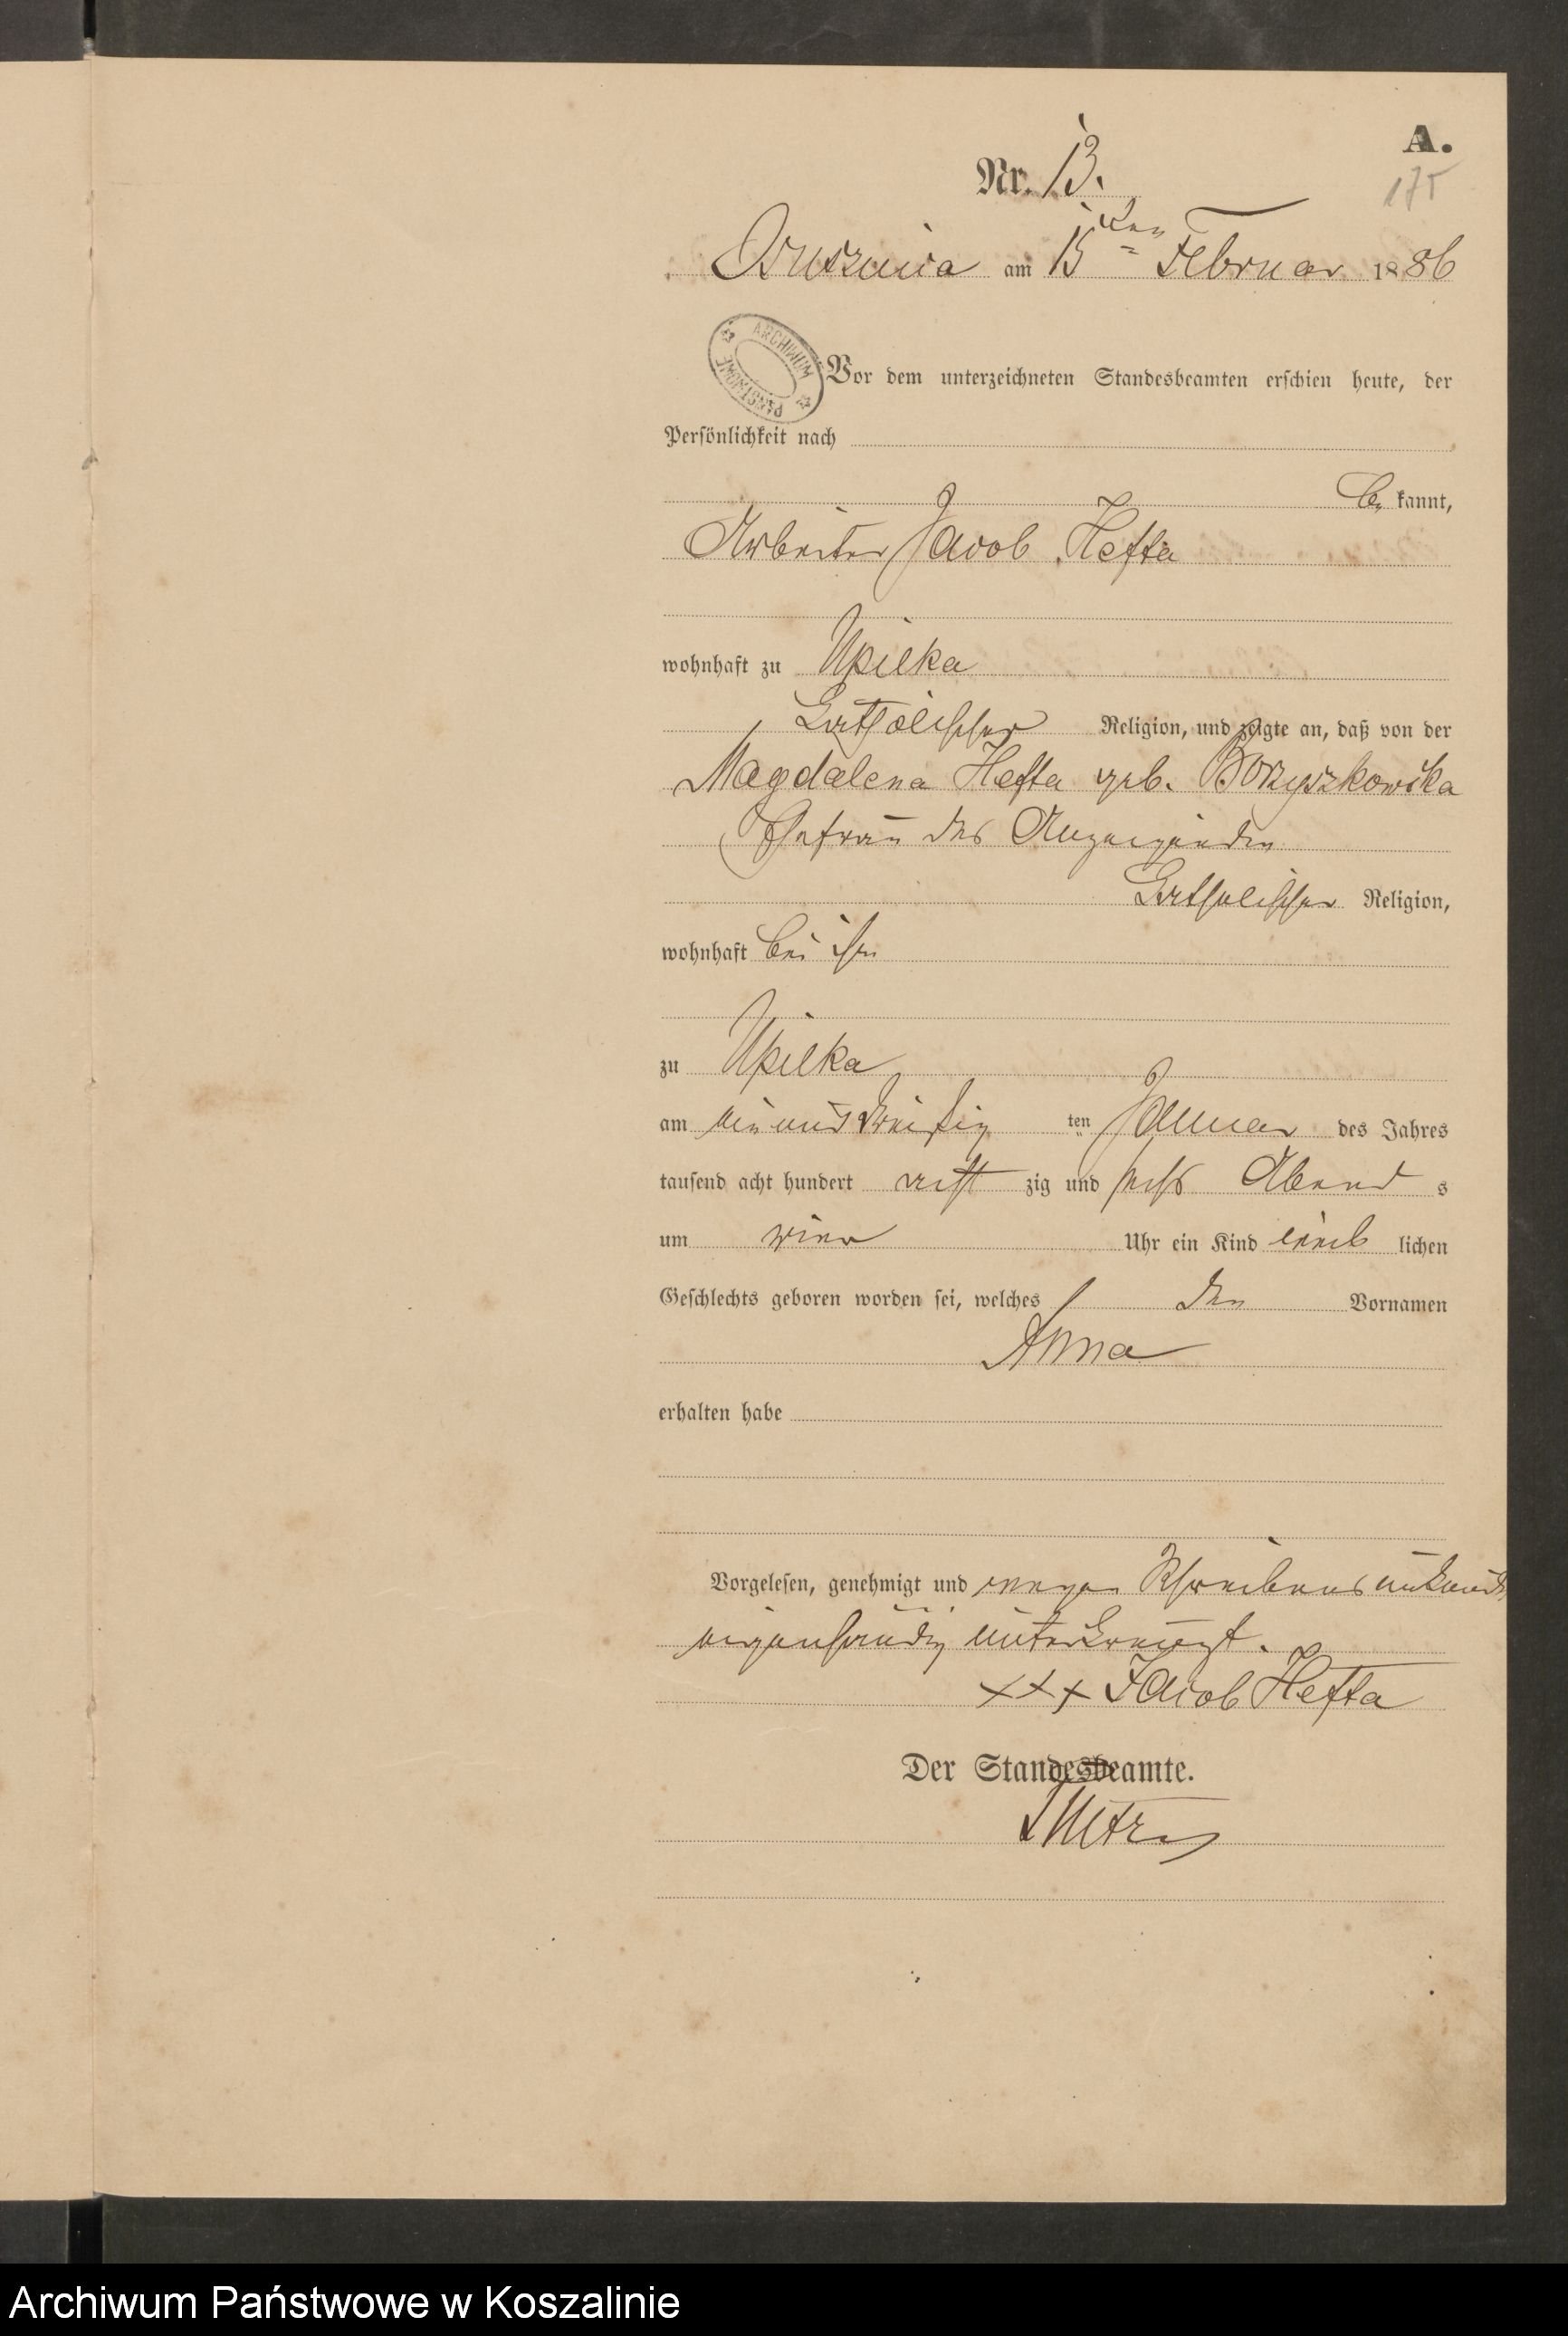 A.
Nr. 13.
175
am 15ten Februar 1886
ARCHIWUM PAŃSTWOWE
Vor dem unterzeichneten Standesbeamten erschien heute, der
Persönlichkeit nach
be kannt,
Arbeiter Jacob Hefta
wohnhaft zu Upilka
katholischer Religion, und zeigte an, daß von der
Magdalena Hefta geb. Borzyszkowska
Ehefrau des Anzeigenden
katholischer Religion,
wohnhaft bei ihm
zu Upilka
am ein und dreißig ten Januar des Jahres
tausend acht hundert acht zig und sechs Abend s
um vier Uhr ein Kind weib lichen
Geschlechts geboren worden sei, welches den Vornamen
Anna
erhalten habe
Vorgelesen, genehmigt und wegen Schreibensunkunde
eigenhändig unterkreuzt.
+++ Jacob Hefta
Der Standesbeamte.
Archiwum Państwowe w Koszalinie